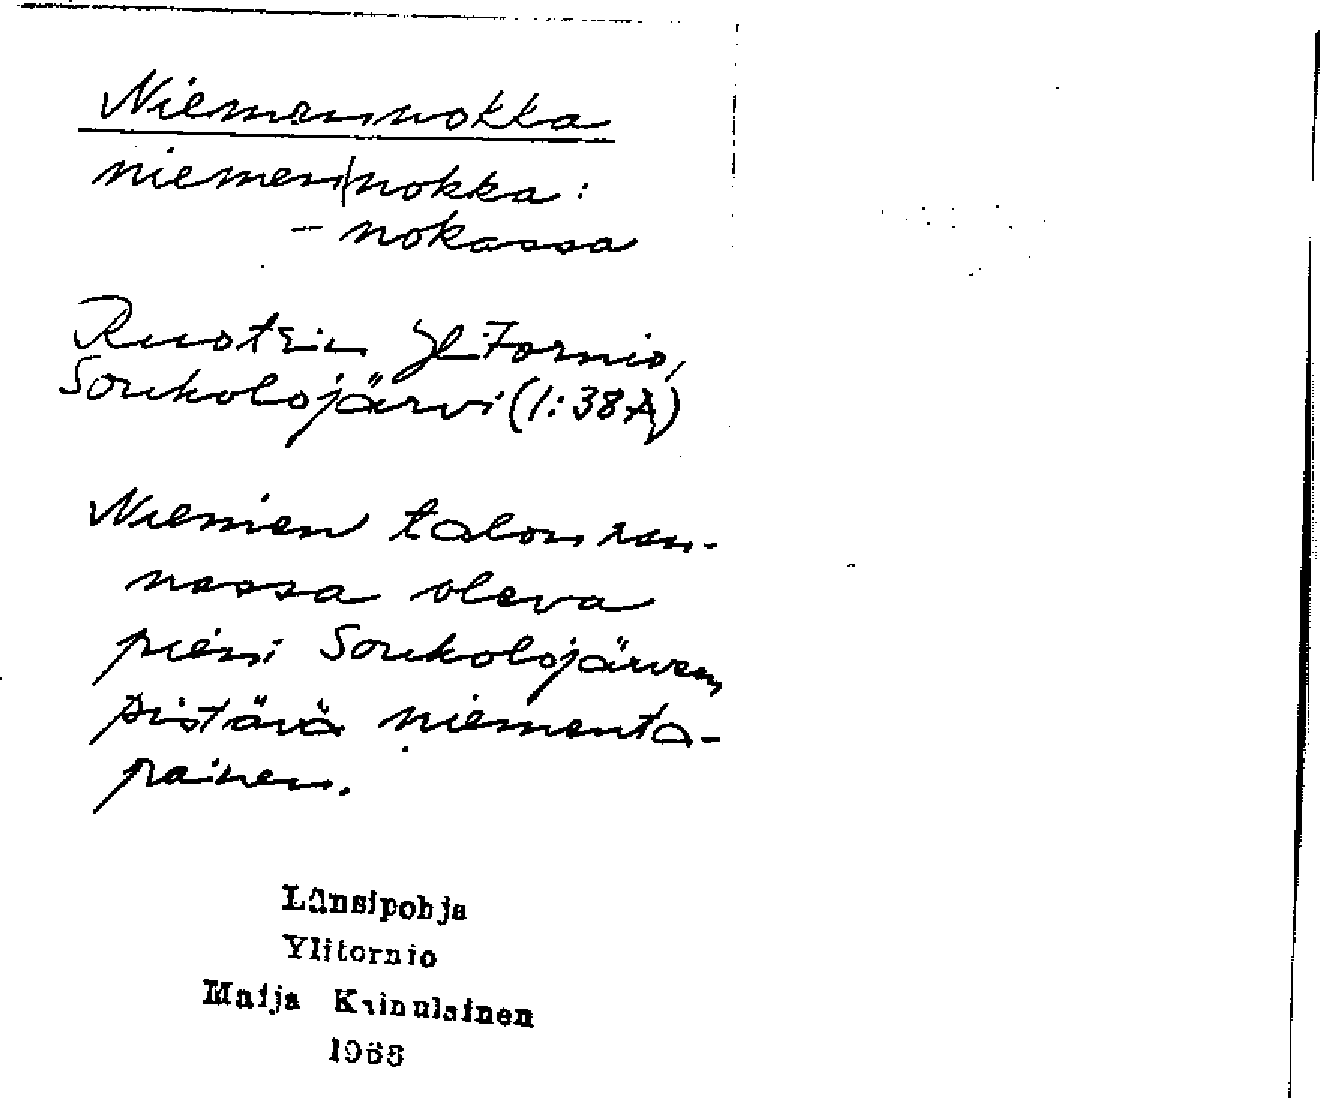 Niemennokka
niemen|nokka:
- nokassa
Ruotsin Yl.Tornio,
Soukolojärvi (1:38A)
Niemen talon ran-
nassa oleva
pieni Soukolojärveen
pistävä niementa-
painen.
Länsipohja
Ylitornio
Maija Kainulainen